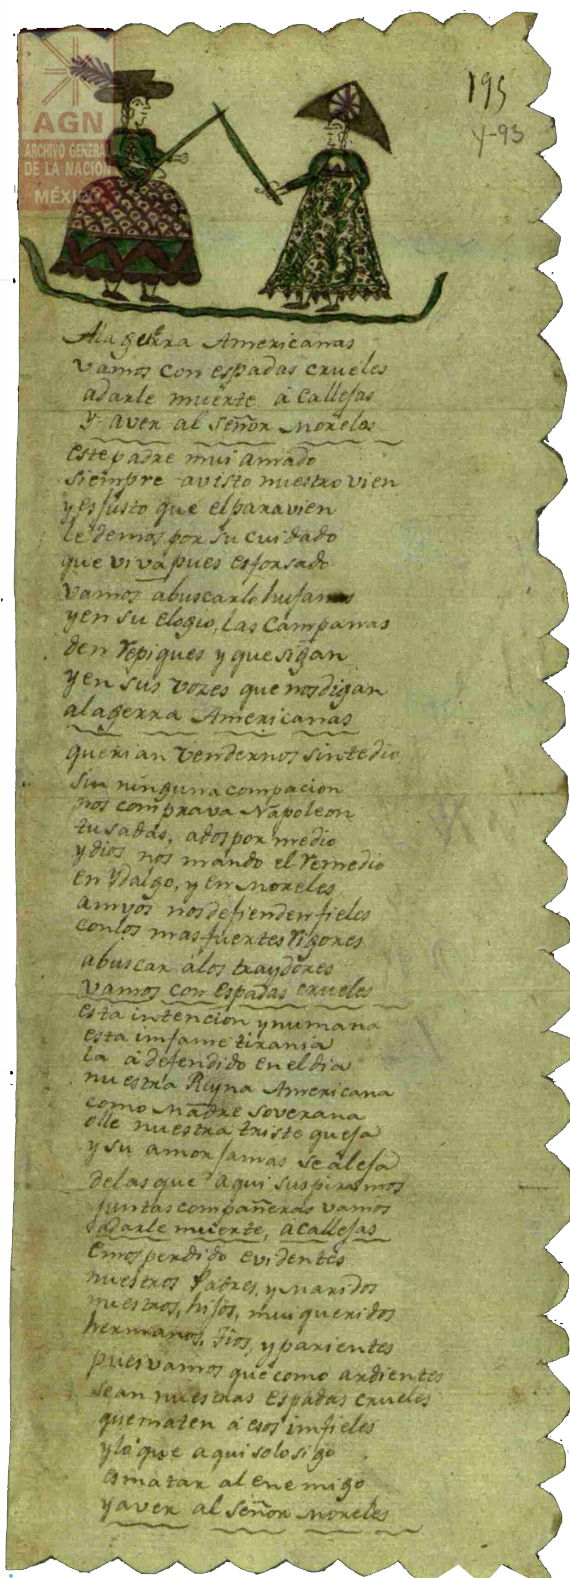 AGN
ARCHIVO GENERAL
DE LA NACIÓN
MÉXICO
195
Y-93
Ala gerra Americanas
vamos con espadas crueles
adarle muerte á Callejas
y aver al Señor Morelos
este padre mui amado
siempre avisto nuestro vien
y es justo que el paravien
le demos por su cuidado
que viva pues esforsado
vamos abuscarlo hufanas
y en su elogio, las Campanas
den repiques y que sigan
y en sus vozes que nos digan
ala gerra Americanas
querian vendernos sin tedio
sin ninguna compacion
nos comprava Napoleon
tusadas, ados por medio
y dios nos mando el remedio
en Ydalgo, y en Morelos
amvos nos defienden fieles
con los mas fuertes rigores
abuscar álos traydores
vamos con espadas crueles
esta intencion ynumana
esta imfame tirania
la á defendido en el dia
nuestra Reyna Americana
como Madre soverana
olle nuestra triste queja
y su amor jamas se aleja
delas que aqui suspiramos
juntas compañeras vamos
adarle muerte, a callejas
Emos perdido evidentes
nuestros Padres, y Maridos
nuestros, hijos, mui queridos
hermanos, tios, y parientes
pues vamos que como ardientes
sean nuestras espadas crueles
que maten á esos imfieles
y lo que aqui solo sigo
es matar al enemigo
y aver al Señor Moreles